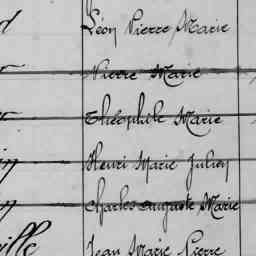 Léon Pierre Marie
Pierre Marie
Théophile Marie
Henri Marie Julien
Charles Auguste Marie
ille Jean Marie Pierre